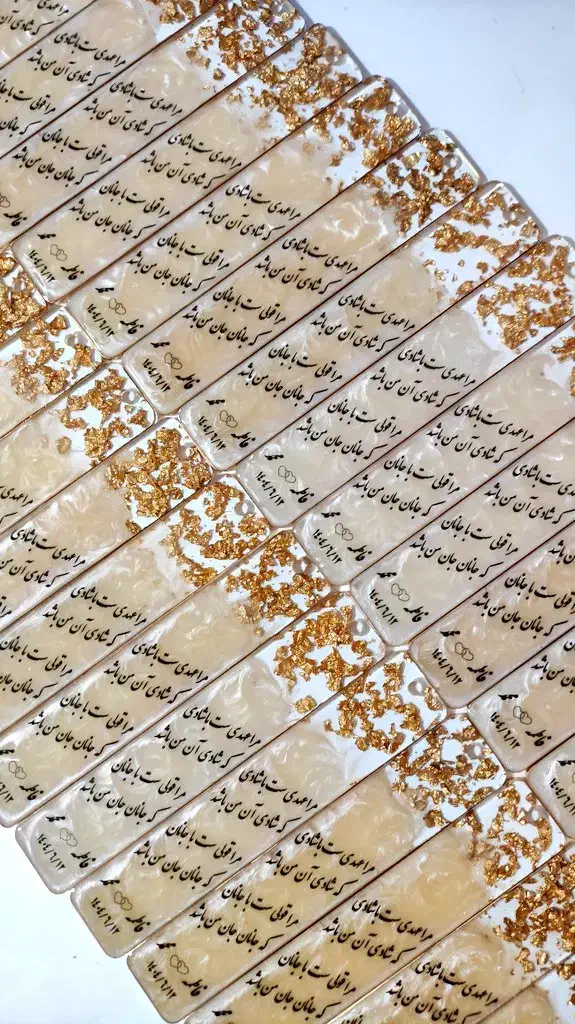 مرا عهدی ست با شادی
که شادی آن من باشد
مرا قولی ست با جانان
که جانان جان من باشد
فاطمه محمد
۱۴۰۴/۶/۱۲